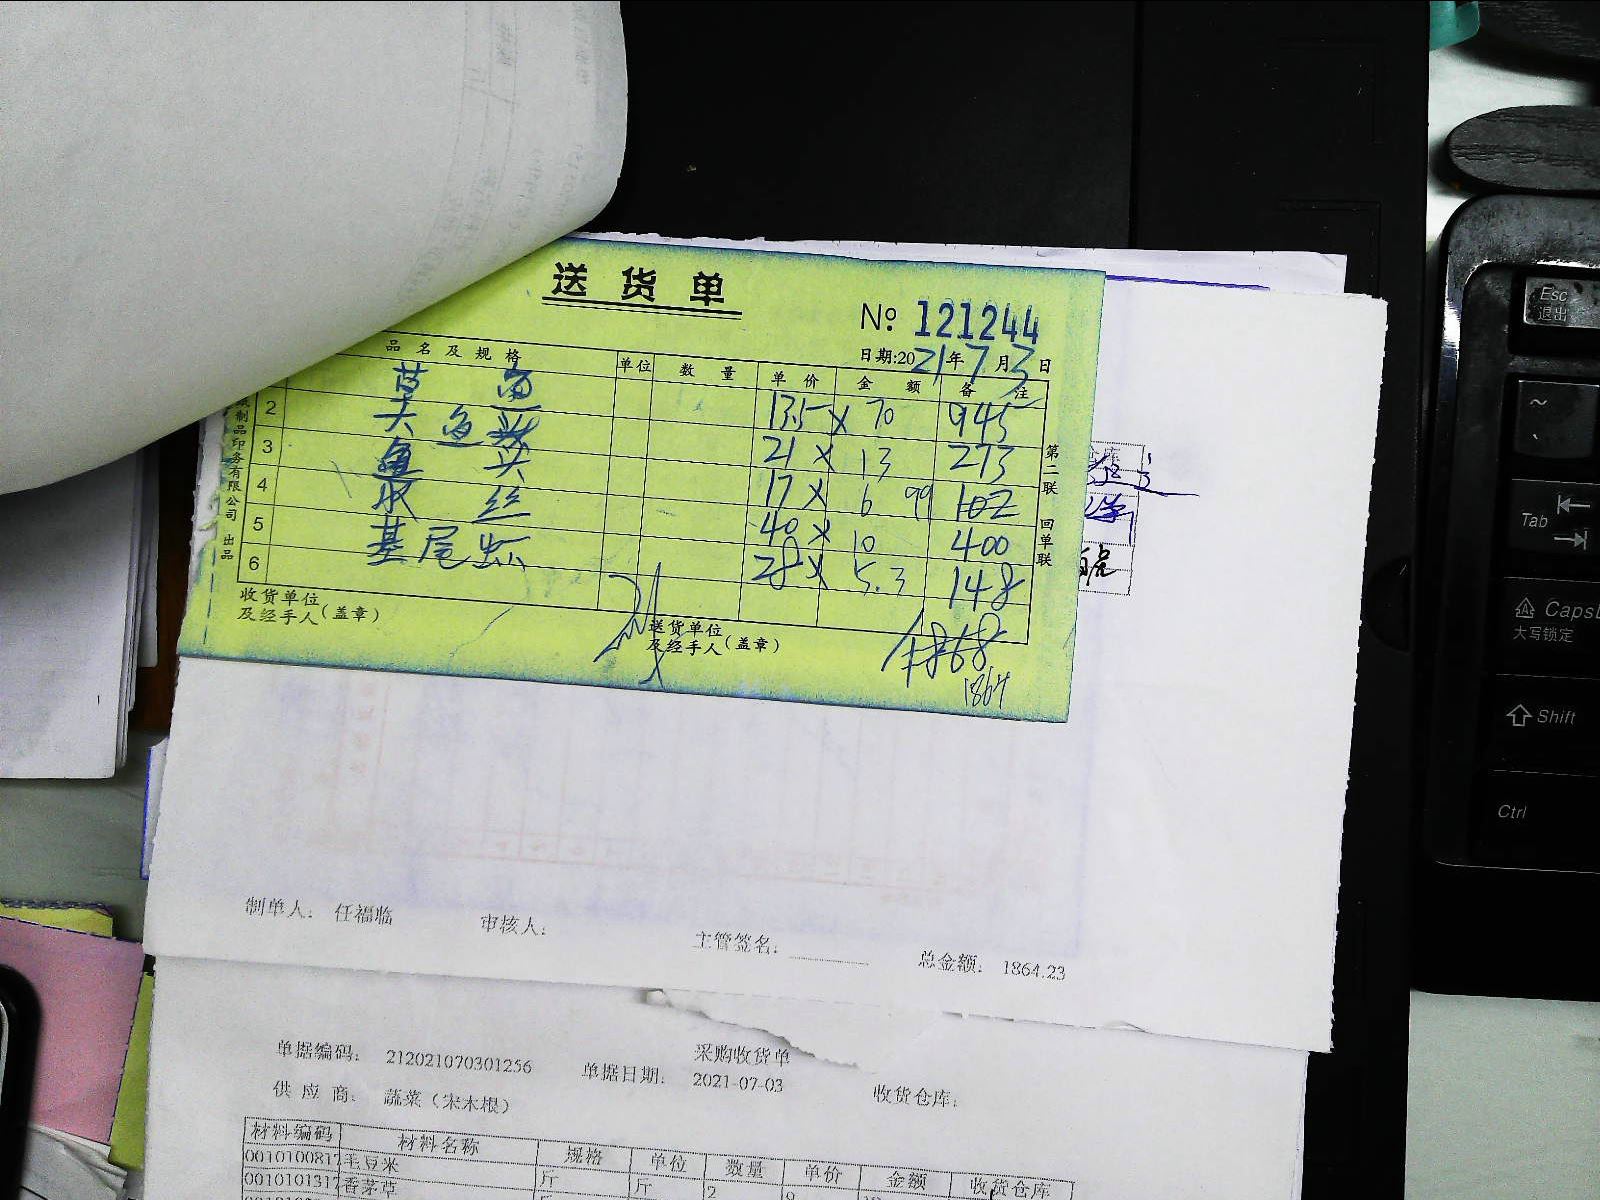 送货单
№ 121244
日期:2021年7月3日
品名及规格 单位 数量 单价 金额 备注
草鱼 13.5 x 70 945
2 大鱼头 21 x 13 273
3 鱼头 17 x 6 99 102
4 水丝 40 x 10 400
5 基尾虾 28 x 5.3 148
6
收货单位
及经手人(盖章)
送货单位
及经手人(盖章)
1868
1864
第二联 回单联
纸制品印务有限公司 出品
制单人: 任福临 审核人: 主管签名: 总金额: 1864.23
采购收货单
单据编码: 212021070301256 单据日期: 2021-07-03 收货仓库:
供应商: 蔬菜(宋木根)
材料编码 材料名称 规格 单位 数量 单价 金额 收货仓库
001010081 毛豆米
001010131 香茅草 斤 斤 2
Esc
退出
~
Tab
Caps
大写锁定
Shift
Ctrl